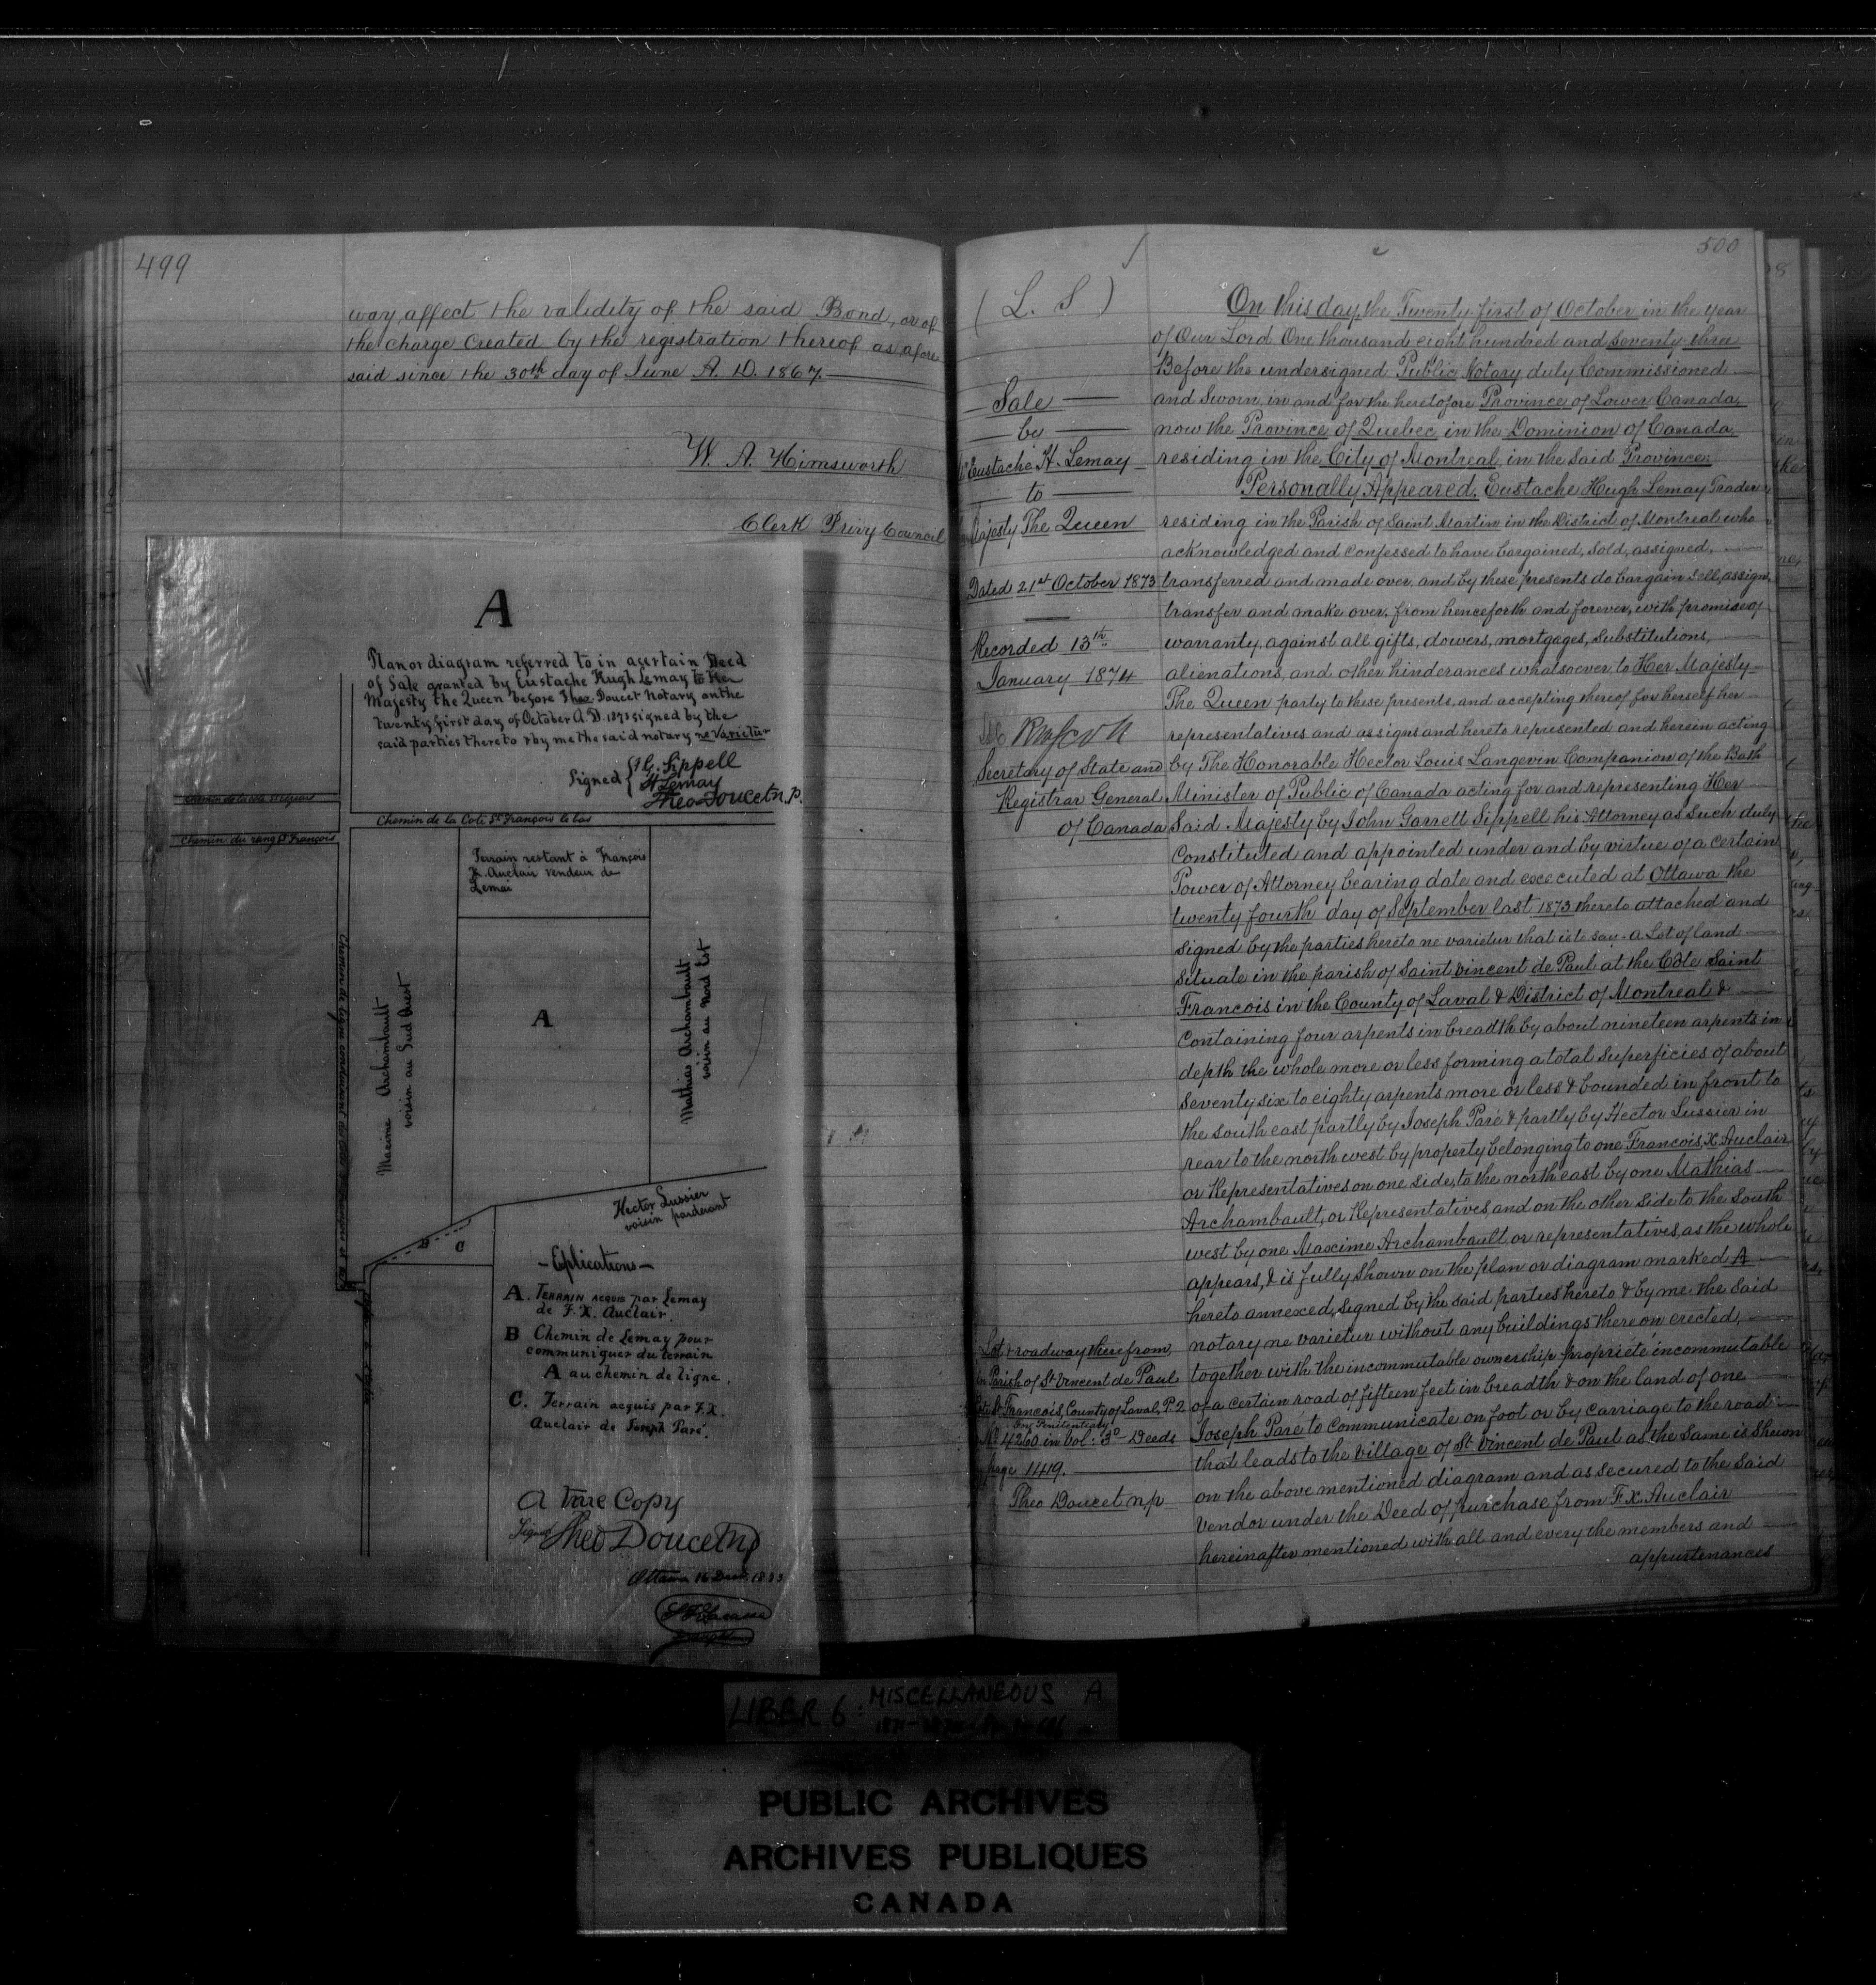 499
way affect the validity of the said Bond, or of
the charge created by the registration thereof as afore
said since the 30th day of June A. D. 1867.
W. A. Himsworth
Clerk Privy Council
A
Plan or diagram referred to in acertain Deed
of Sale granted by Eustache Hugh Lemay to Her
Majesty the Queen before Theo. Doucet Notary on the
twenty first day of October A.D. 1873 signed by the
said parties thereto & by me the said notary ne Varietur
Signed { J G. Sippell
H Lemay
Theo Doucet n.p.
Chemin de la Coté St François le bas
Chemin du rang St François
Terrain restant à François
X. Auclair vendeur de
Lemai
Maxime Archambault
voisin au Sud Ouest
A
Mathias Archambault
voisin au Nord Est
Hector Lussier
voisin parderant
B
C
- Eplications -
A. Terrain acquis par Lemay
de F. X. Auclair.
B Chemin de Lemay pour
communiquer du terrain
A au chemin de ligne.
C. Terrain acquis par F. X.
Auclair de Joseph Paré.
A true Copy
Signed Theo Doucet np
Ottawa 16 Decr. 1873
500
( L. S )
Sale
by
Eustache H. Lemay
to
Majesty The Queen
Dated 21st October 1873
Recorded 13th
January 1874
Secretary of State and
Registrar General
of Canada
Lot & roadway therefrom,
in Parish of St Vincent de Paul
Cote St Francois, County of Laval, P. 2
For Penitentiary
No 4260 in Vol: 30 Deeds
page 1419.
Theo Doucet n/p
On this day, the Twenty first of October in the year
of Our Lord One thousand eight hundred and seventy-three
Before the undersigned Public Notary duly Commissioned
and Sworn, in and for the heretofore Province of Lower Canada,
now the Province of Quebec in the Dominion of Canada,
residing in the City of Montreal, in the said Province:
Personally Appeared, Eustache Hugh Lemay Trader
residing in the Parish of Saint Martin in the District of Montreal who
acknowledged and confessed to have bargained, sold, assigned,
transferred and made over, and by these presents do bargain sell, assign,
transfer and make over, from henceforth and forever, with promise of
warranty, against all gifts, dowers, mortgages, substitutions,
alienations, and other hinderances whatsoever to Her Majesty
The Queen party to these presents, and accepting thereof for herself her
representatives and assigns and hereto represented and herein acting
by The Honorable Hector Louis Langevin Companion of the Bath
Minister of Public of Canada acting for and representing Her
Said Majesty by John Garrett Sippell his Attorney as such duly
Constituted and appointed under and by virtue of a certain
Power of Attorney bearing date and excecuted at Ottawa the
twenty fourth day of September last 1873 thereto attached and
signed by the parties hereto ne varietur that is to say. a Lot of land
situate in the parish of Saint Vincent de Paul at the Côte Saint
Francois in the County of Laval & District of Montreal &
Containing four arpents in breadth by about nineteen arpents in
depth the whole more or less forming a total superficies of about
Seventy six to eighty arpents more or less & bounded in front to
the south east partly by Joseph Paré & partly by Hector Lussier in
rear to the north west by property belonging to one Francois X. Auclair
or Representatives on one side, to the north east by one Mathias
Archambault, or Representatives and on the other side to the South
west by one Maxime Archambault or representatives, as the whole
appears, & is fully shown on the plan or diagram marked A
hereto annexed, signed by the said parties hereto & by me the said
notary ne varietur without any buildings thereon erected,
together with the incommutable ownership propriété incommutable
of a certain road of fifteen feet in breadth & on the land of one
Joseph Paré to communicate on foot or by carriage to the road
that leads to the village of St Vincent de Paul as the same is shewn
on the above mentioned diagram and as secured to the said
Vendor under the Deed of purchase from F. X. Auclair
hereinafter mentioned with all and every the members and
appurtenances
LIBER 6: MISCELLANEOUS A
PUBLIC ARCHIVES
ARCHIVES PUBLIQUES
CANADA